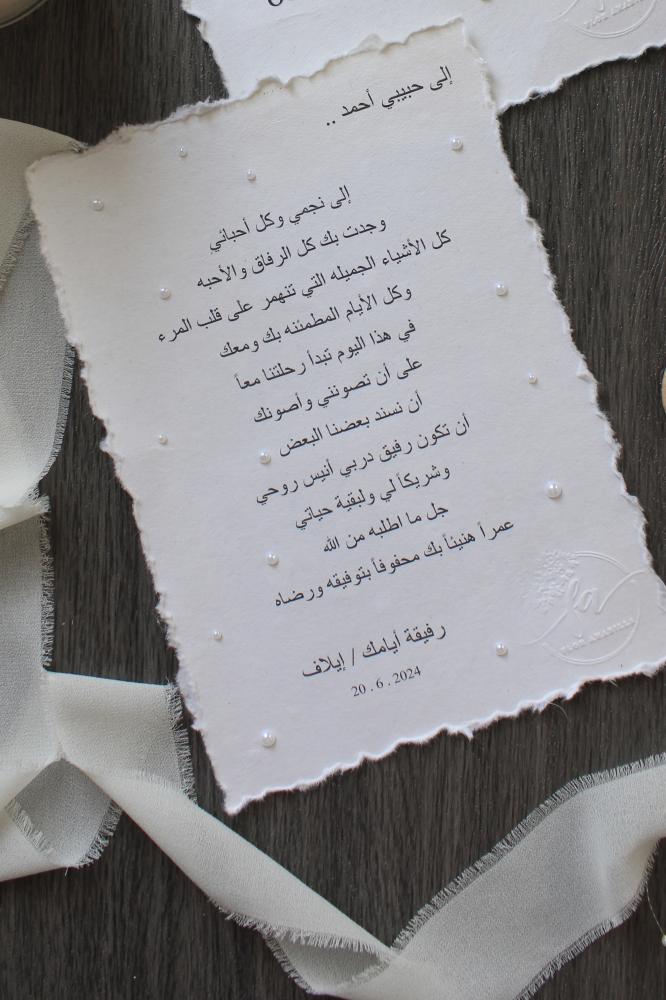 إلى حبيبي أحمد ..
إلى نجمي وكل أحبائي
وجدت بك كل الرفاق والأحبه
كل الأشياء الجميله التي تنهمر على قلب المرء
وكل الأيام المطمئنه بك ومعك
في هذا اليوم تبدأ رحلتنا معاً
على أن تصونني وأصونك
أن نسند بعضنا البعض
أن تكون رفيق دربي أنيس روحي
وشريكاً لي ولبقية حياتي
جل ما اطلبه من الله
عمراً هنيئاً بك محفوفاً بتوفيقه ورضاه
رفيقة أيامك / إيلاف
20 . 6 . 2024